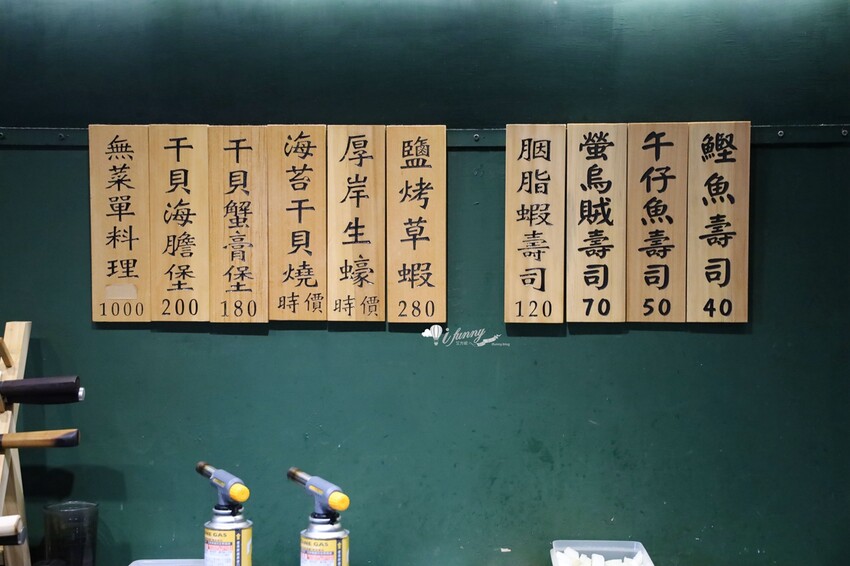 鰹魚壽司
40
午仔魚壽司
50
螢烏賊壽司
70
胭脂蝦壽司
120
鹽烤草蝦
280
厚岸生蠔
時價
海苔干貝燒
時價
干貝蟹膏堡
180
干貝海膽堡
200
無菜單料理
1000
i funny